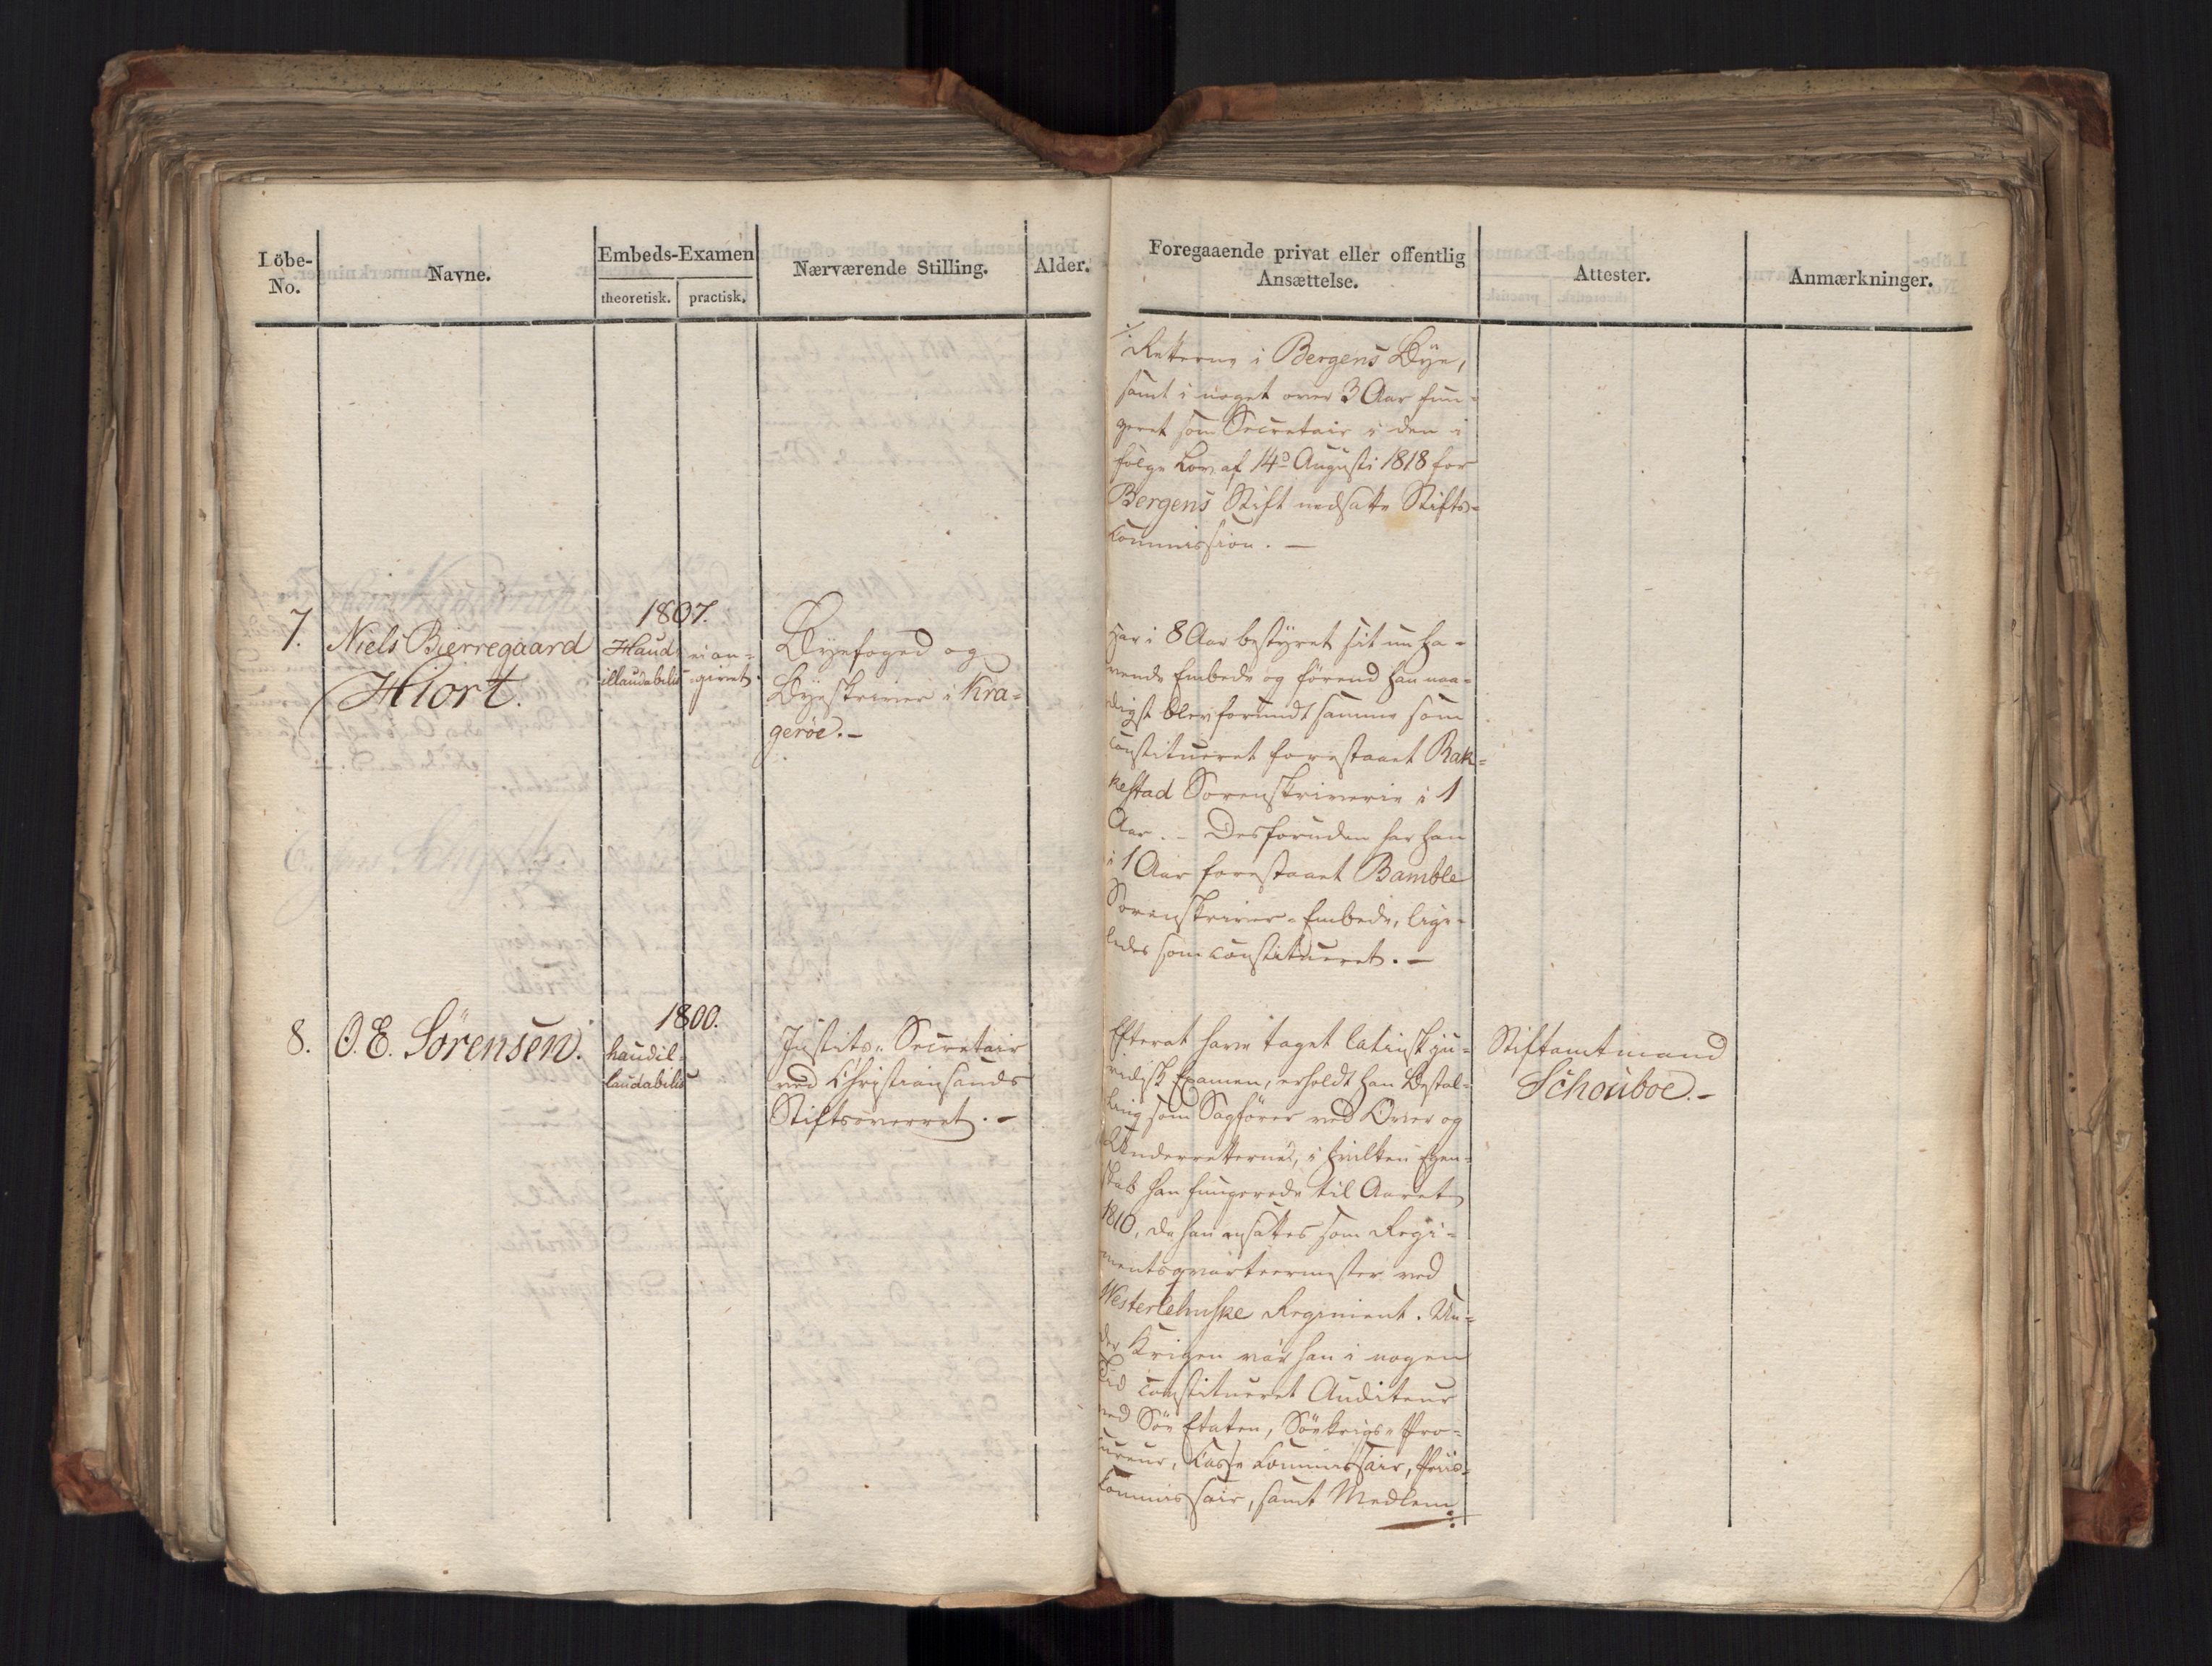 Löbe-
No.
Navne.
Embeds-Examen
theoretisk.
practisk.
Nærværende Stilling.
Alder.
Foregaaende privat eller offentlig
Ansættelse.
Attester.
Anmærkninger.
Retterne i Bergens Bye,
samt i noget over 3 Aar fun-
geret som Secretair i den i
følge Lov af 14d Augusti 1818 for
Bergens Stift nedsatte Stifts-
Commission. —
7.
Niels Bierregaard
Hiort.
1807.
Haud
illaudabilis
ei an-
givet.
Byefoged og
Byeskriver i Kra-
gerøe. —
Har i 8 Aar bestyret sit nu ha-
vende Embede og førend han naa-
digst blev forundt samme som
constitueret forestaaet Rak-
kestad Sorenskriverie i 1
Aar. — Desforuden har han
i 1 Aar forestaaet Bamble
Sorenskriver-Embede, lige-
ledes som constitueret. —
8.
O. E. Sörensen.
1800.
haudil-
laudabilis
Justits-Secretair
ved Christiansands
Stiftsoverret. —
Efterat have taget latinsk ju-
ridisk Examen, erholdt han Bestal-
ling som Sagfører ved Over og
Underretterne, i hvilken Egen-
skab han fungerede til Aaret
1810, da han ansattes som Regi-
mentsqvarteermester ved
Westerlehnske Regiment. Un-
der Krigen var han i nogen
Tid constitueret Auditeur
ved Söe Etaten, Söekrigs-Pro-
cureur, Casse Commissair, Priis-
Commissair, samt Medlem
Stiftamtmand
Schouboe. —